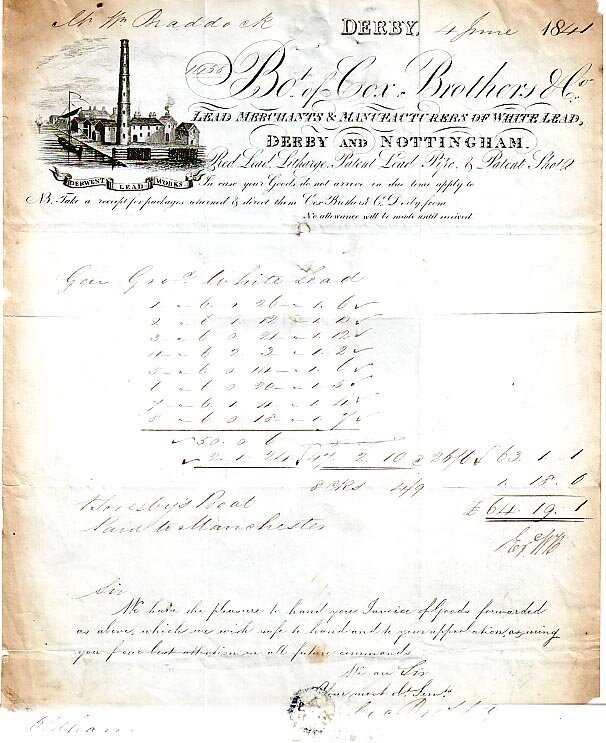 Mr Wm Braddock
DERBY, 4 June 1841
1456
Bot. of Cox Brothers & Co.
LEAD MERCHANTS & MANUFACTURERS OF WHITE LEAD,
DERBY AND NOTTINGHAM.
Red Lead, Litharge, Patent Lead Pipe, & Patent Shot,
DERWENT LEAD WORKS
In case your Goods do not arrive in due time apply to
NB. Take a receipt for packages returned & direct them Cox Brothers & Co. Derby, from
No allowance will be made until received
White Lead
1 - 6 0 26 - 1. 6
2 - 6 1 12 - 1. 12
3 - 6 0 21 - 1. 12
4 - 6 2 3 - 1. 2
5 - 6 0 14 - 1. 6
6 0 20 - 1. 5
7 - 6 1 4 - 1. 4
8 - 6 0 18 - 1. 7
50. 0 6
2. 1. 24 47 2. 10 @ 26/6 £ 63. 1. 1
8 Cks 4/9 1. 18. 0
Boat £64. 19. 1
Paid to Manchester
Sir
We have the pleasure to hand you Invoice of Goods forwarded
as above, which we wish safe to hand and to your approbation, assuring
you of our best attention in all future commands
We are Sir
Your most Obt. Servts.